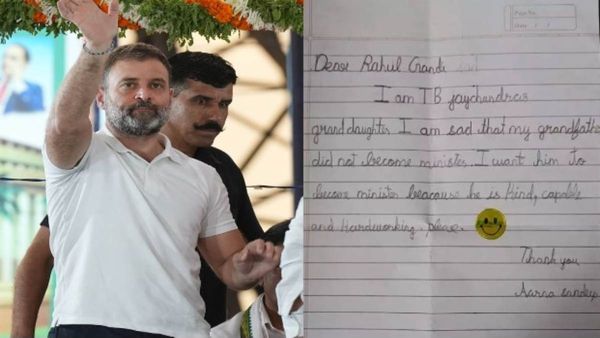 Dear Rahul Gandi sad
I am TB jaychundras
grand daughter I am sad that my grandfathe
did not become minister. I want him to
become minister beacause he is kind, capable
and Hardworking. please.
Thank you
Aarna Sandeep